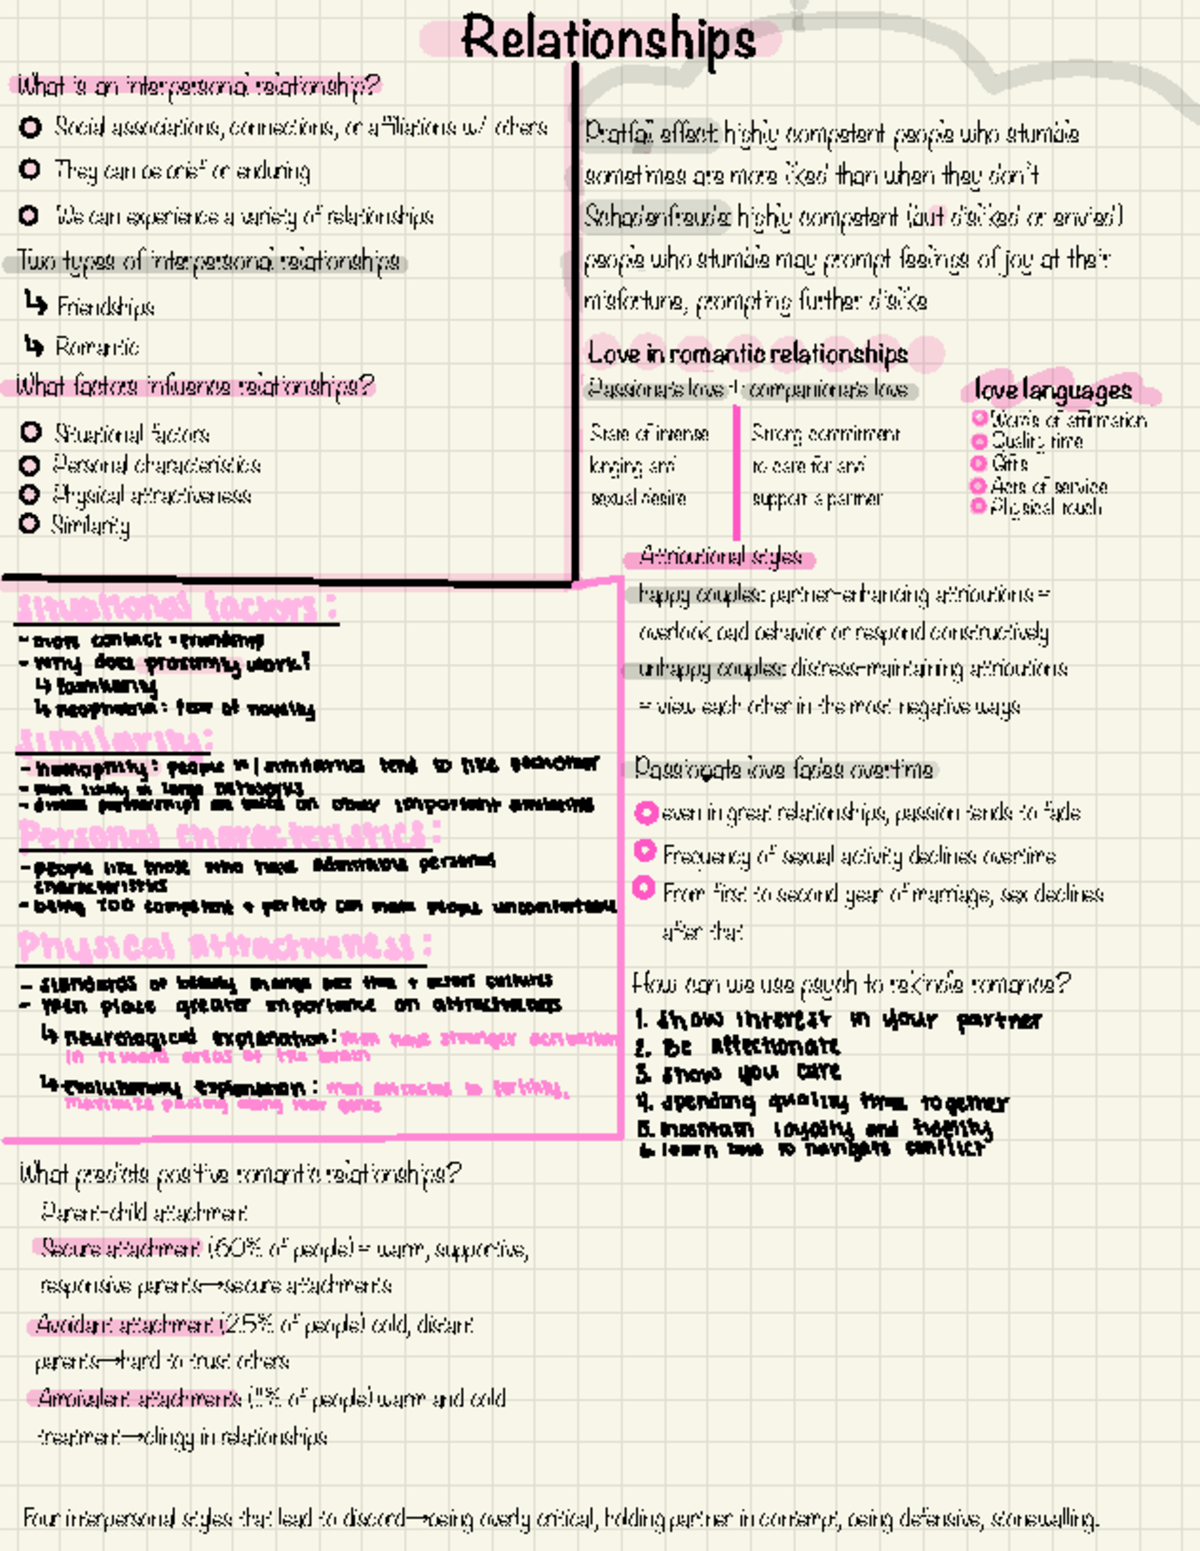 Relationships
What is an interpersonal relationship?
Social associations, connections, or affiliations w/ others
They can be brief or enduring
We can experience a variety of relationships
Two types of interpersonal relationships
↳ Friendships
↳ Romantic
What factors influence relationships?
Situational factors
Personal characteristics
Physical attractiveness
Similarity
Pratfall effect: highly competent people who stumble
sometimes are more liked than when they don't
Schadenfreude: highly competent (but disliked or envied)
people who stumble may prompt feelings of joy at their
misfortune, prompting further dislike
Love in romantic relationships
Passionate love + companionate love
State of intense
longing and
sexual desire
Strong commitment
to care for and
support a partner
love languages
Words of affirmation
Quality time
Gifts
Acts of service
Physical touch
Attributional styles
happy couples: partner-enhancing attributions =
overlook bad behavior or respond constructively
unhappy couples: distress-maintaining attributions
= view each other in the most negative ways
Passionate love fades overtime
even in great relationships, passion tends to fade
Frequency of sexual activity declines overtime
From first to second year of marriage, sex declines
after that
How can we use psych to rekindle romance?
1. show interest in your partner
2. Be affectionate
3. show you care
4. spending quality time together
5. maintain loyalty and fidelity
6. learn how to navigate conflict
Situational factors:
- more contact = friendship
- Why does proximity work?
↳ familiarity
↳ neophobia: fear of novelty
Similarity:
- homophily: people w/ similarities tend to like eachother
- more likely in large networks
- on other important similarities
Personal characteristics:
- people like those who have admirable personal
characteristics
- being TOO competent + perfect can make people uncomfortable
Physical attractiveness:
- standards of beauty change over time + across cultures
- Men place greater importance on attractiveness
↳ neurological explanation: men have stronger activation
in reward areas of the brain
↳ evolutionary explanation: men attracted to fertility,
maximize passing along your genes
What predicts positive romantic relationships?
Parent-child attachment
Secure attachment (60% of people) = warm, supportive,
responsive parents→secure attachments
Avoidant attachment (25% of people) cold, distant
parents→hard to trust others
Ambivalent attachments (11% of people) warm and cold
treatment→clingy in relationships
Four interpersonal styles that lead to discord→being overly critical, holding partner in contempt, being defensive, stonewalling.